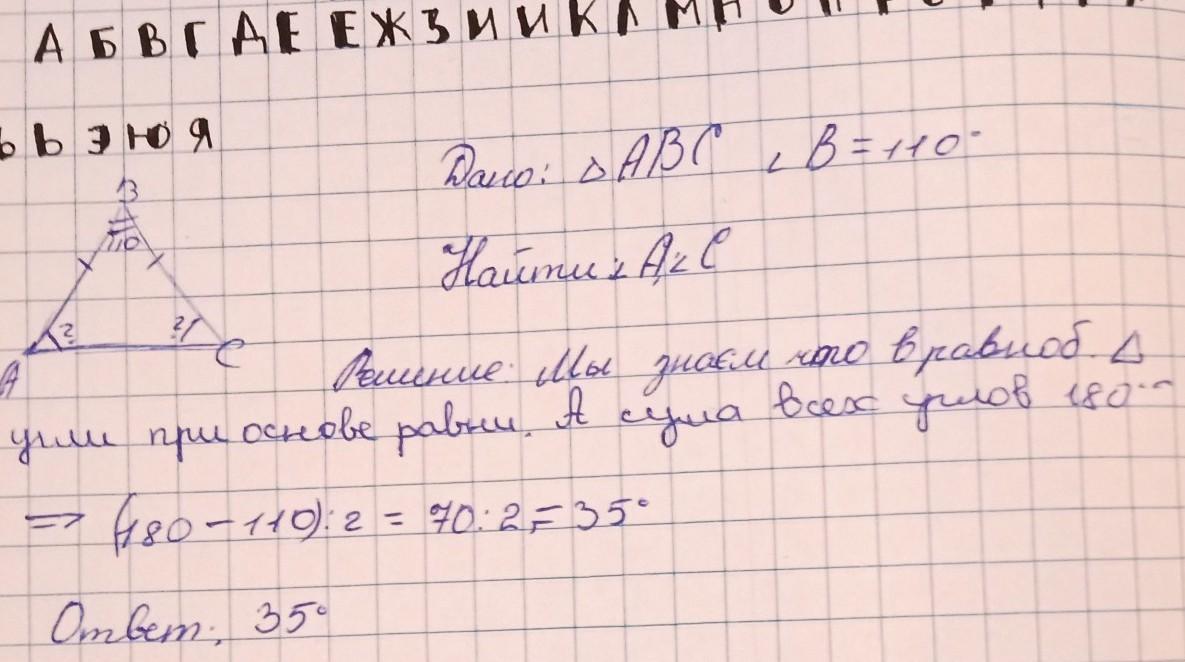 А Б В Г Д Е Е Ж З И И К Л М Н О П Р С
Ь Ь Э Ю Я
Дано: △ ABC ∠ B = 110°
B
110
Найти ∠ A ∠ C
? ?
A C
Решение: Мы знаем что в равноб. △
угли при основе равни. А сума всех углов 180°
=> (180 - 110) : 2 = 70 : 2 = 35°
Ответ: 35°